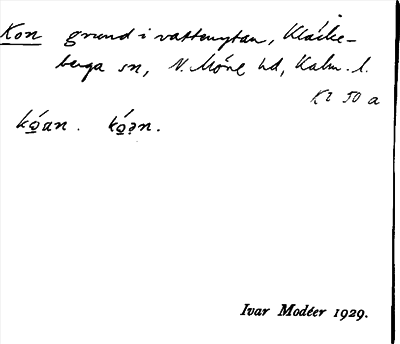 Kon grund i vattenytan, Kläcke-
berga sn, N. Möre hd, Kalm. l.
Kl 50 a
kó̱an. kó̱ən.
Ivar Modéer 1929.